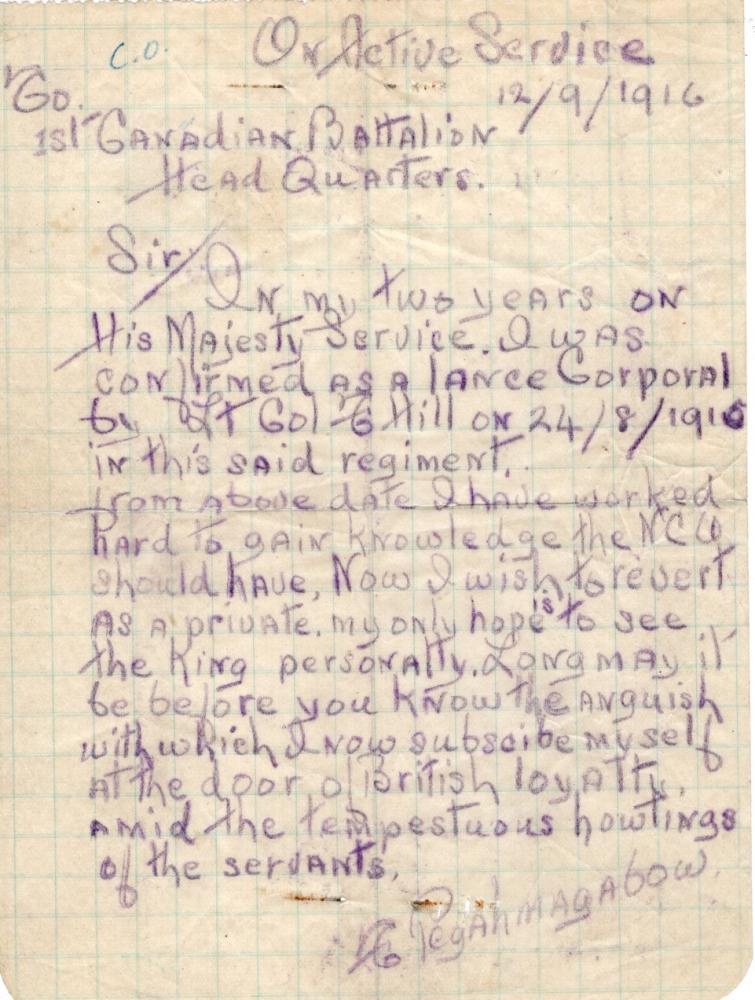 C.O. On Active Service
12/9/1916
Go.
1st Canadian Battalion
Head Quarters.
Sir/
In my two years on
His Majesty Service. I was
confirmed as a lance Corporal
by Lt Col Hill on 24/8/1916
in this said regiment.
from above date I have worked
hard to gain knowledge the NCO
should have, Now I wish to revert
as a private. my only hope is to see
the King personally. Long may it
be before you know the anguish
with which I now subscibe myself
at the door of British loyalty,
amid the tempestuous howlings
of the servants.
Pegahmagabow.